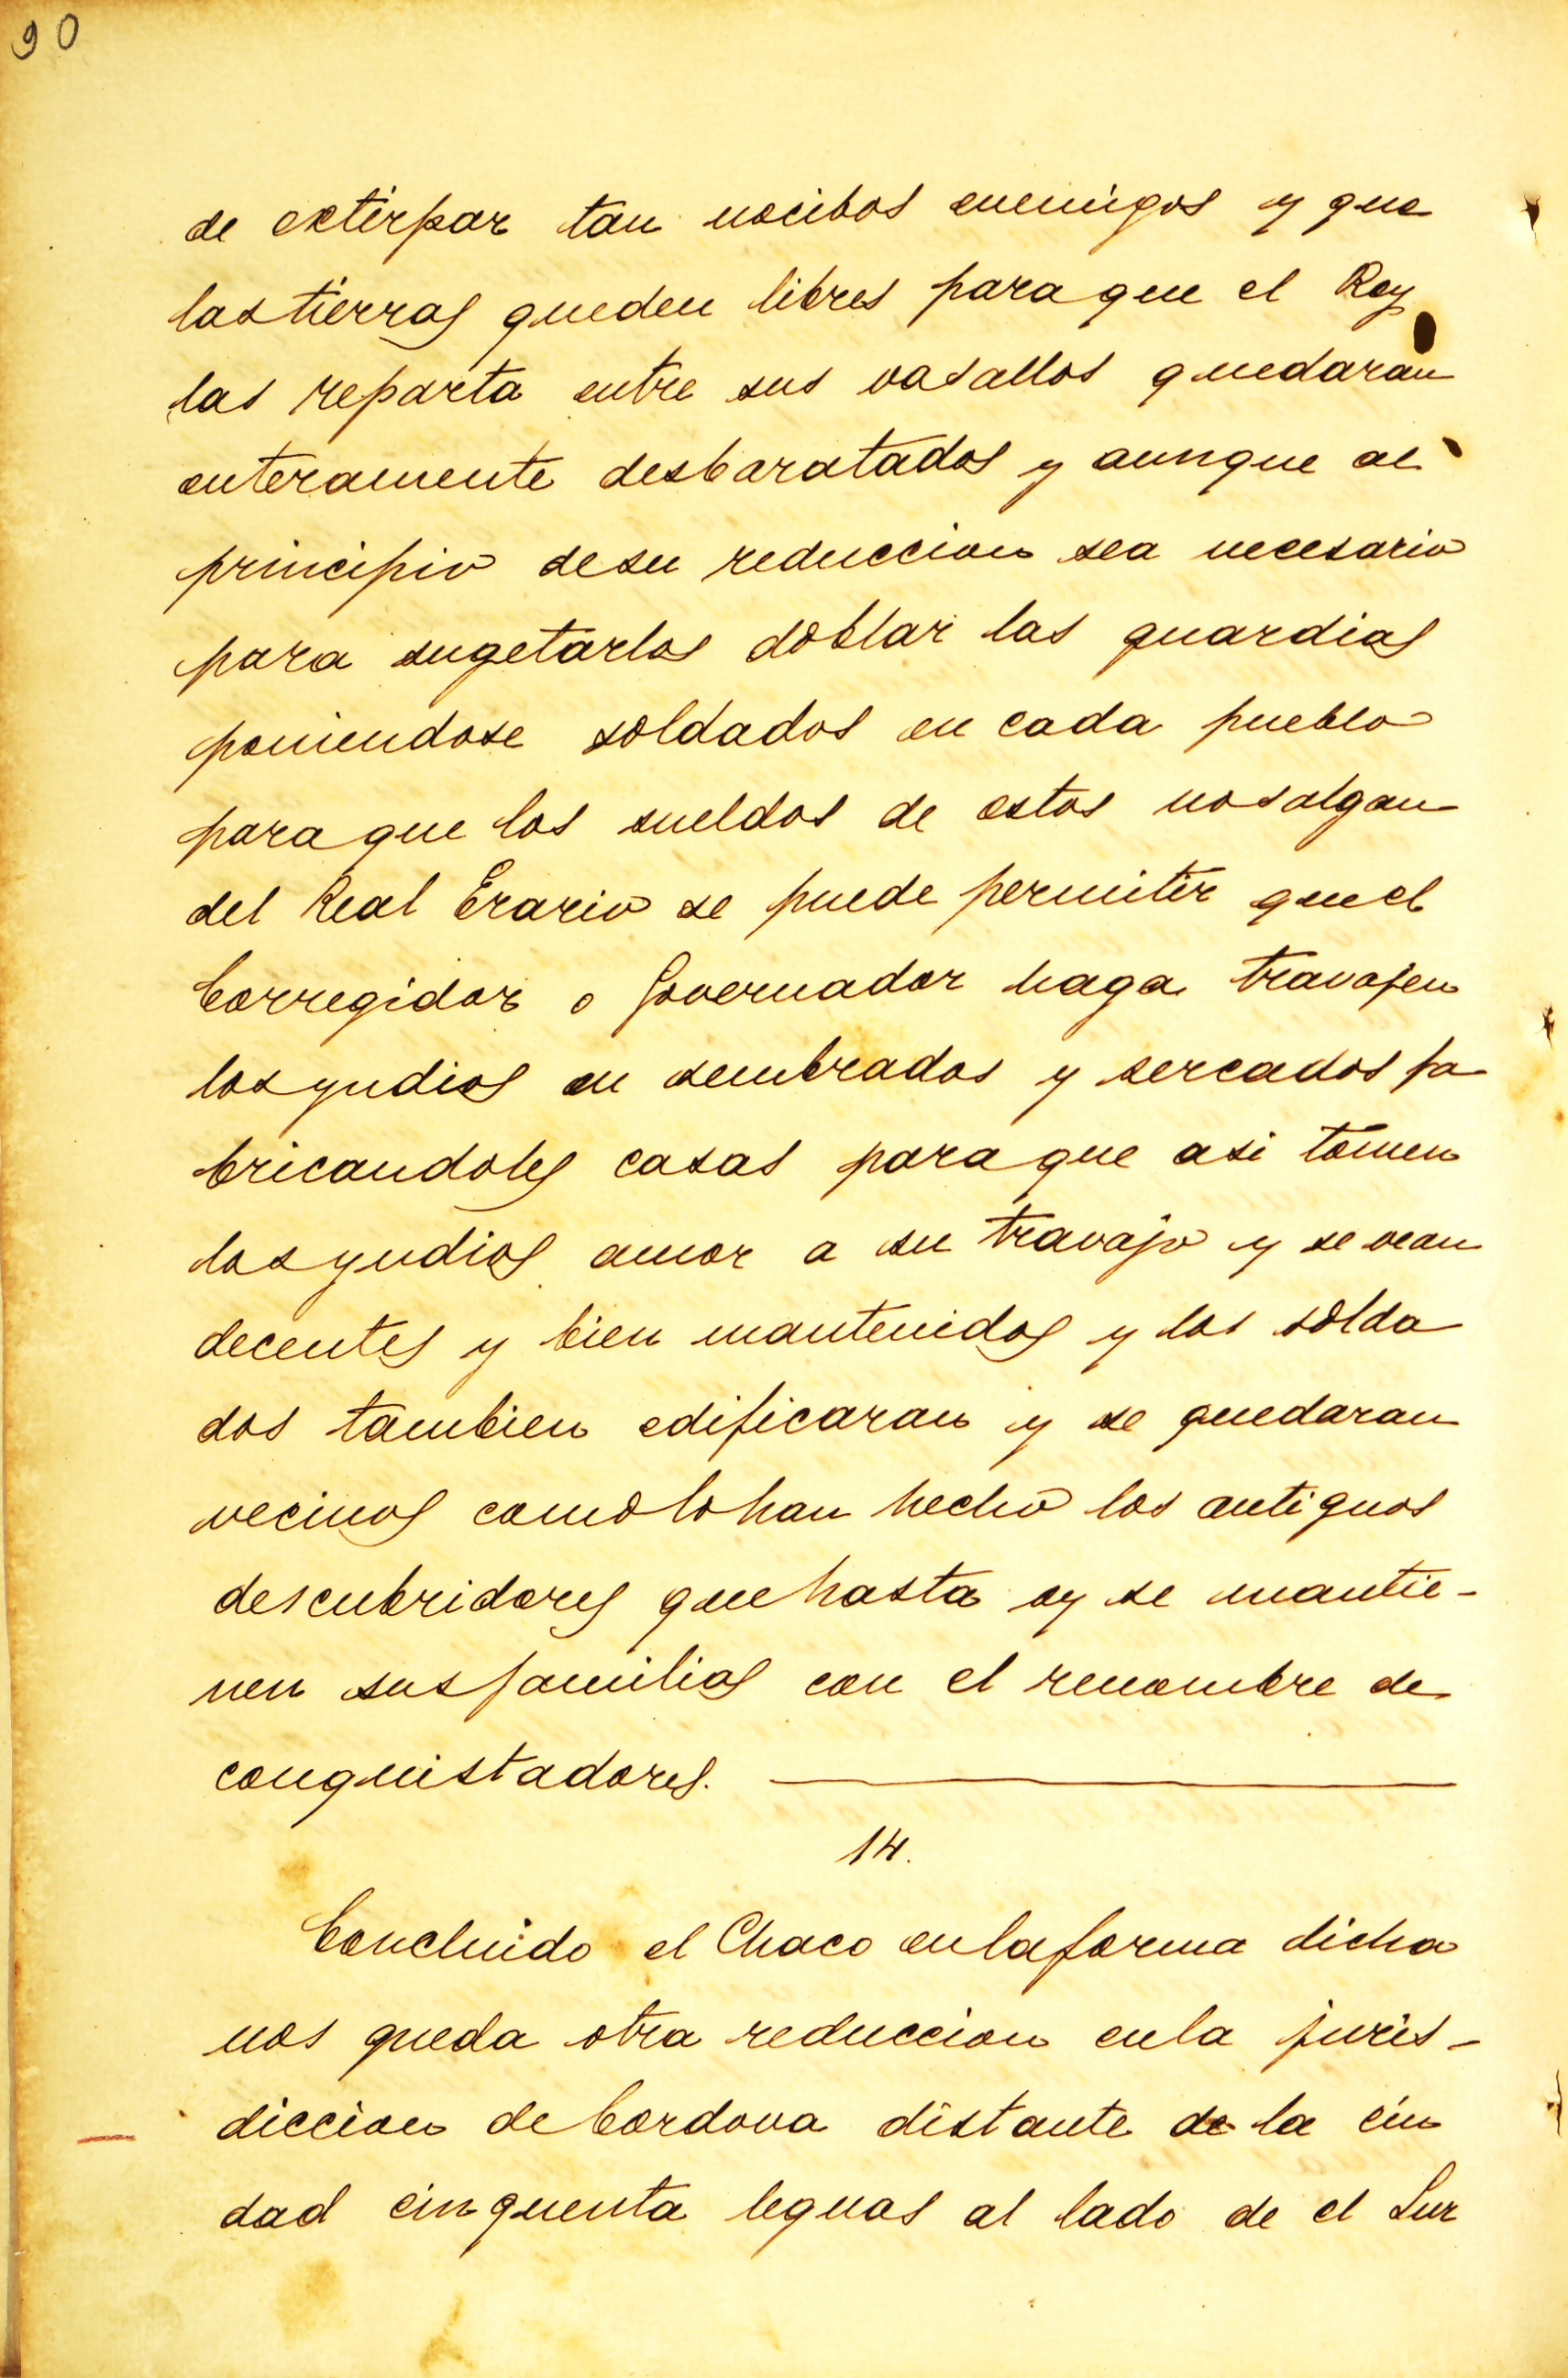 90
de extirpar tan nocibos enemigos y que
las tierras queden libres para que el Rey
las reparta entre sus vasallos quedaran
enteramente desbaratados y aunque al
principio de su reduccion sea necesario
para sugetarlos doblar las guardias
poniendose soldados en cada pueblo
para que los sueldos de estos no salgan
del Real Erario se puede permitir que el
Corregidor o Governador haga travajen
los yndios en sembrados y sercados fa
bricandoles casas para que asi tomen
los yndios amor a su travajo y se vean
decentes y bien mantenidos y los solda
dos tambien edificaran y se quedaran
vecinos como lo han hecho los antiguos
descubridores que hasta oy se mantie-
nen sus familias con el renombre de
conquistadores.
14.
Concluido el Chaco en la forma dicha
nos queda otra reduccion en la juris-
diccion de Cordova distante de la ciu
dad cinquenta leguas al lado de el Sur